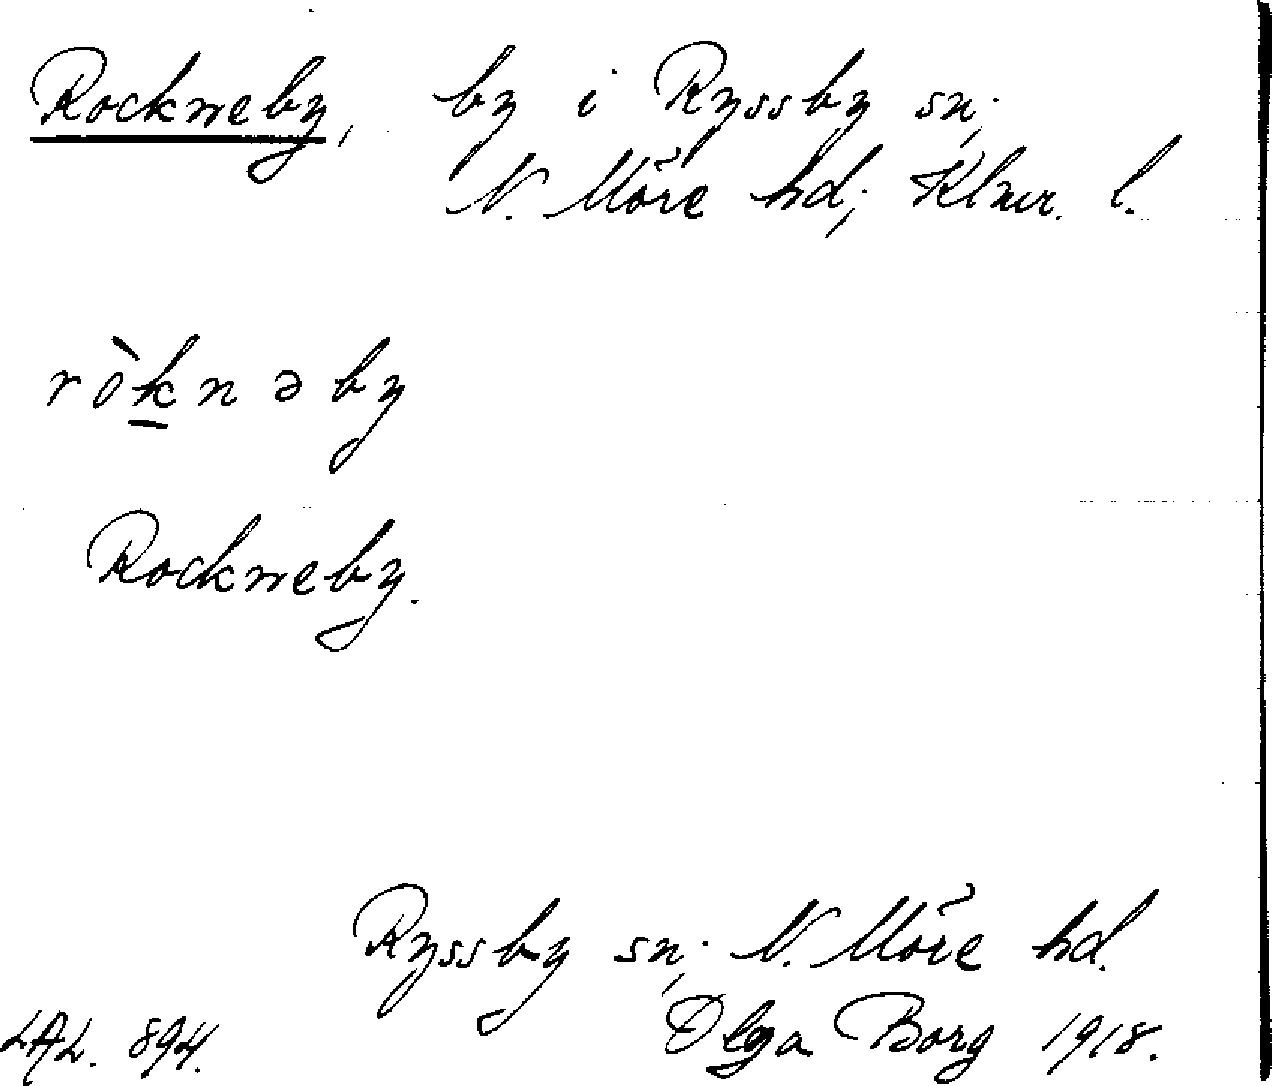 Rockneby, by i Ryssby sn;
N. Möre hd; Klmr. l.
ròk̲nəby
Rockneby.
Ryssby sn; N. Möre hd.
LAL. 894. Olga Borg 1918.